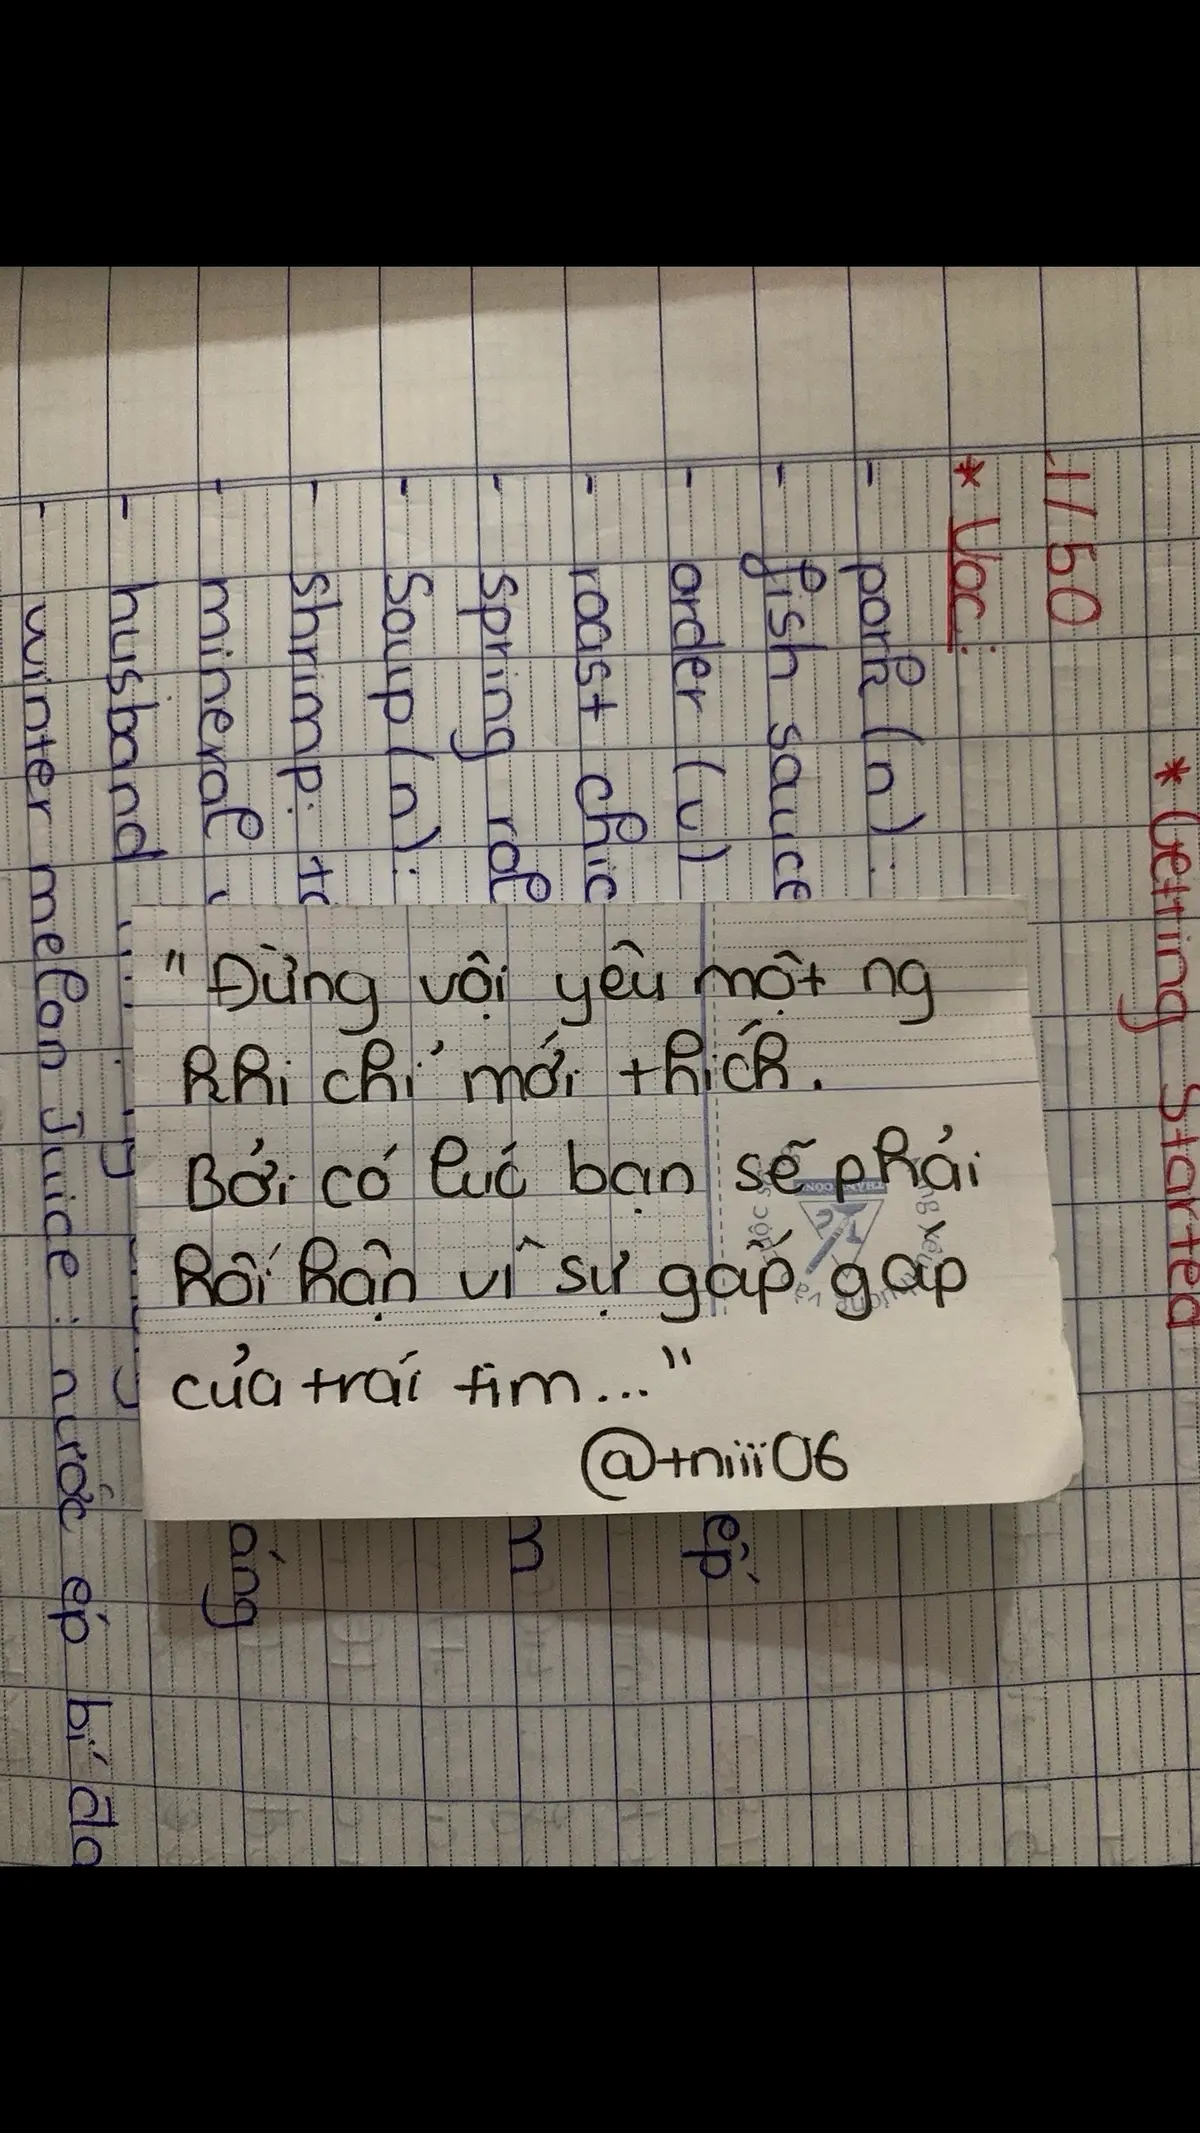 "Đừng vội yêu một ng
khi chỉ mới thích.
Bởi có lúc bạn sẽ phải
hối hận vì sự gấp gáp
của trái tim..."
@tniii06
* Getting Started
1/50
* Voc:
- pork (n):
- fish sauce
- order (v)
- roast chic
- spring rol
- Soup (n):
- Shrimp:
- mineral
- husband
- winter melon Juice: nước ép bí đao
ếp
m
áng